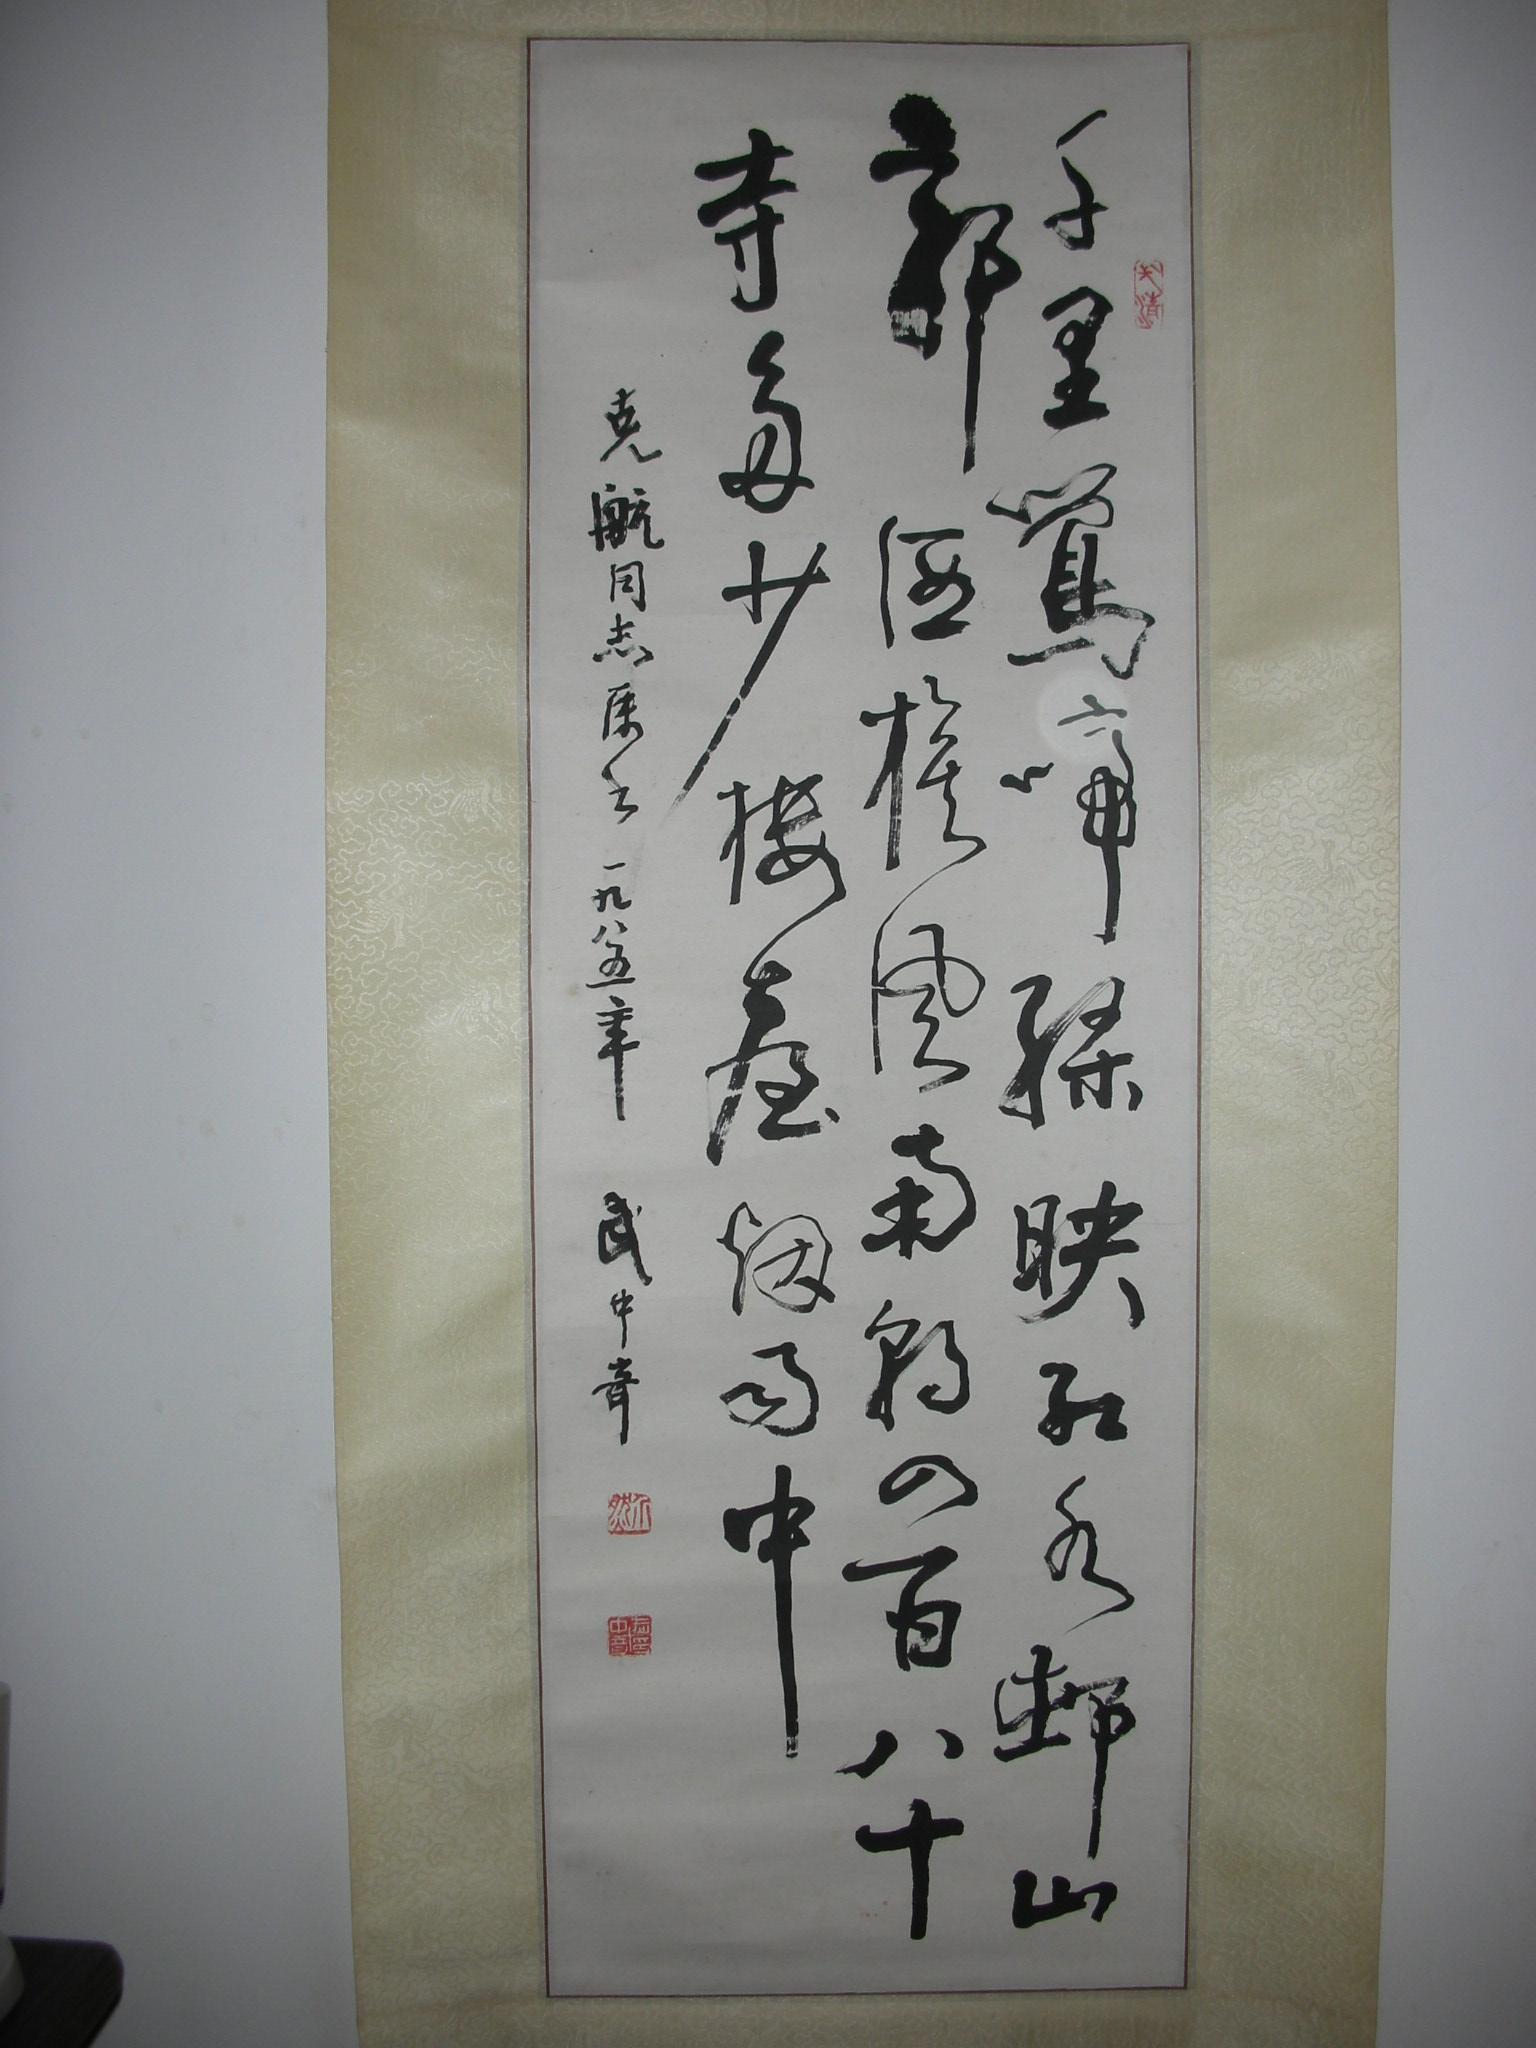 千里鶯啼綠映紅水邨山
郭酒旗風南朝四百八十
寺多少樓臺烟雨中
克航同志属书 一九八五年 武中奇